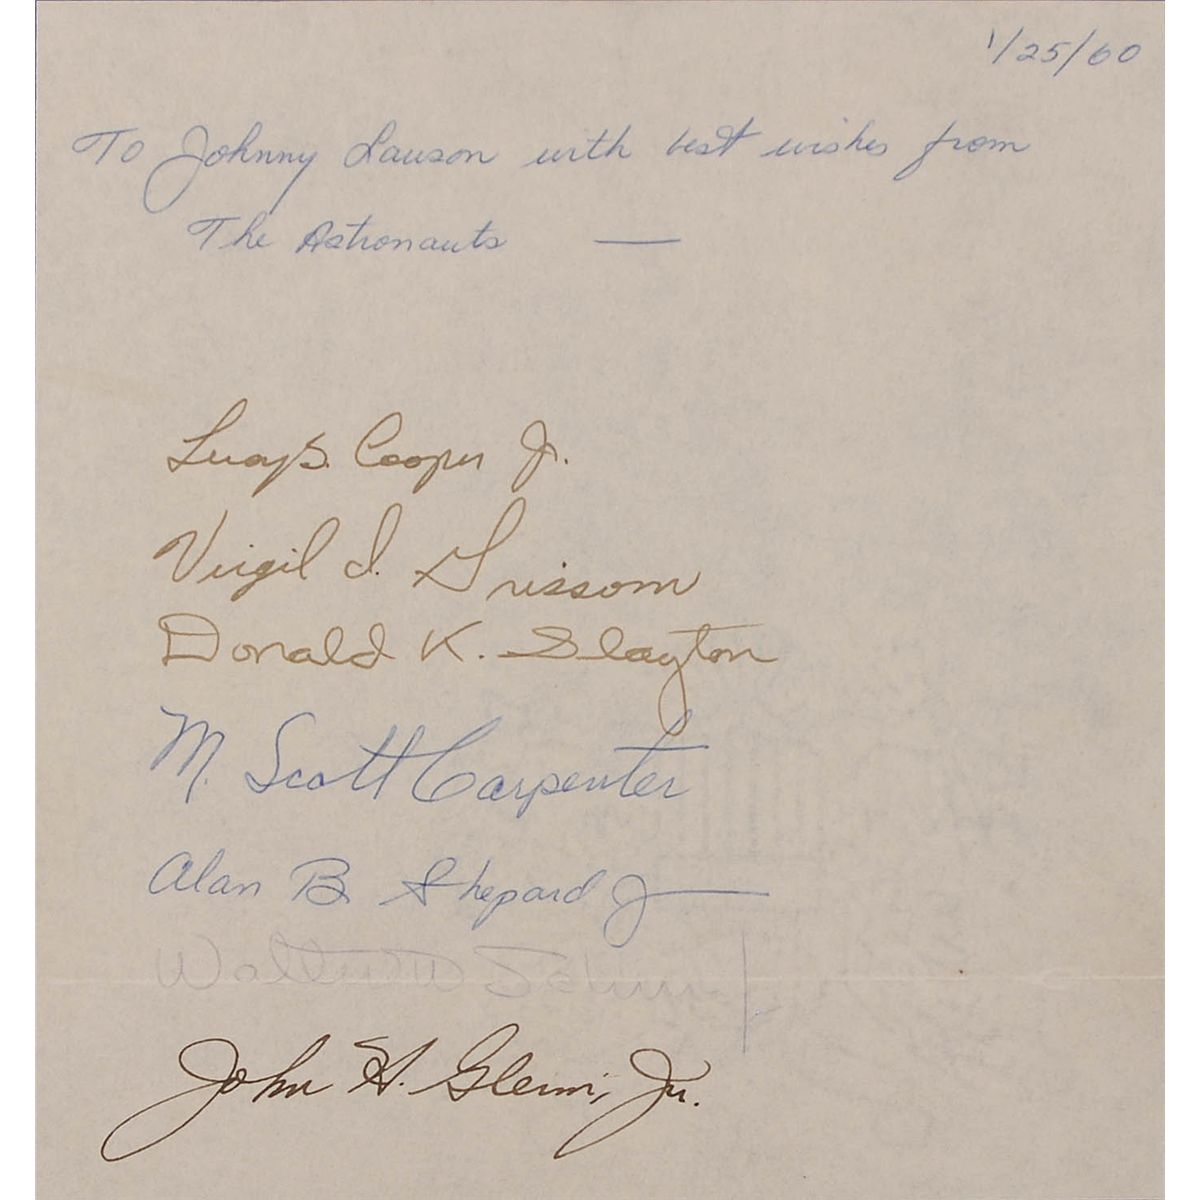 1/25/60
To Johnny Lawson with best wishes from
The Astronauts —
Leroy G. Cooper Jr.
Virgil I. Grissom
Donald K. Slayton
M. Scott Carpenter
Alan B Shepard Jr
Walter M Schirra Jr
John H. Glenn, Jr.